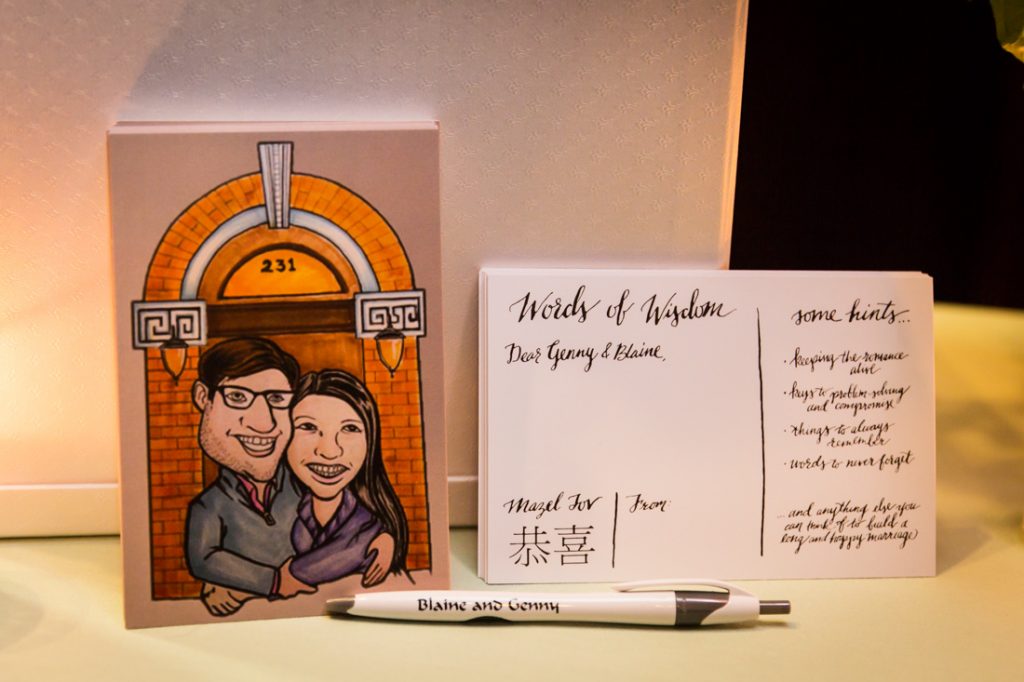 231
Words of Wisdom
Dear Genny & Blaine,
Mazel Tov
恭喜
From:
some hints...
· keeping the romance
alive
· keys to problem-solving
and compromise
· things to always
remember
· words to never forget
...and anything else you
can think of to build a
long and happy marriage)
Blaine and Genny